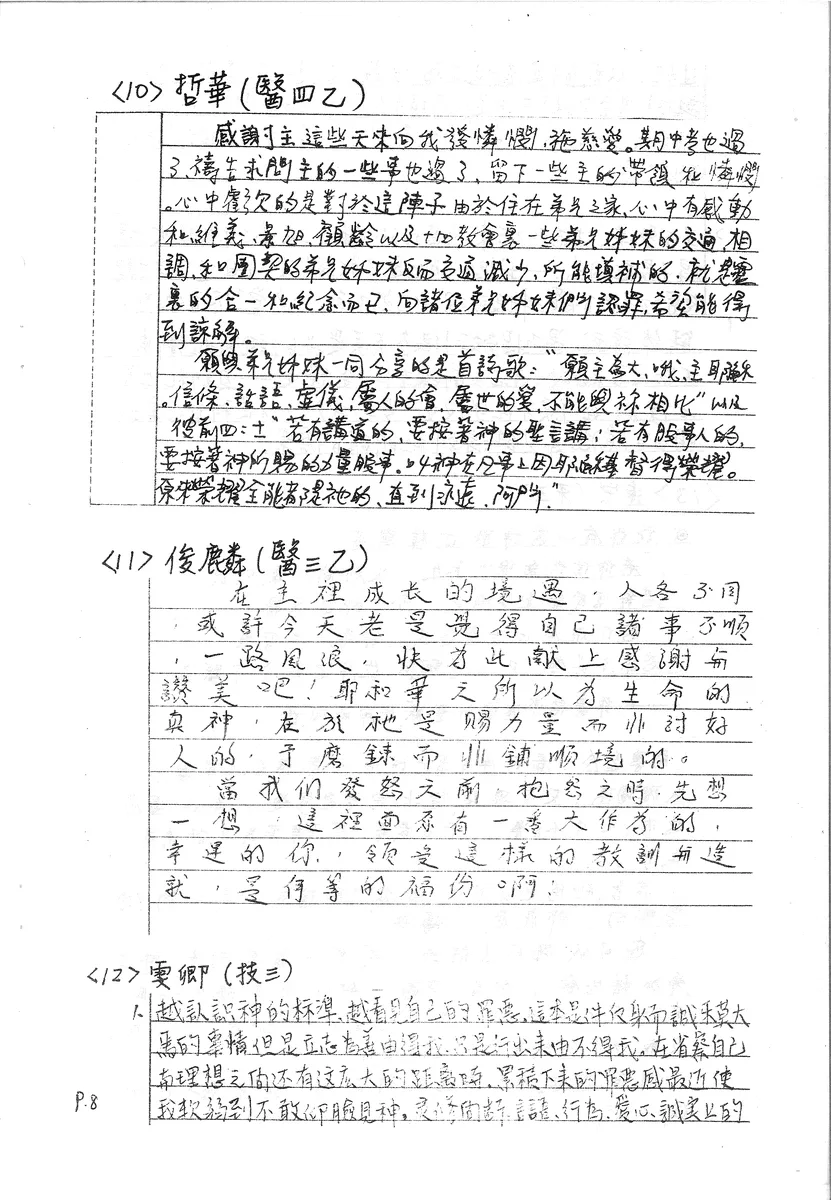 <10> 哲華(醫四乙)
感謝主這些天來向我發憐憫,施慈愛。期中考也過
了,禱告求問主的一些事也過了,留下一些主的帶領和憐憫
。心中虧欠的是對於這陣子由於住在弟兄之家,心中有感動
和維義、景旭、顧齡以及十四教會裏一些弟兄姊妹的交通,相
調,和團契的弟兄姊妹反而交通減少,所能填補的,就是靈
裏的合一和紀念而已,向諸位弟兄姊妹們認罪,希望能得
到諒解。
願與弟兄姊妹一同分享的是首詩歌:"願主為大,哦,主耶穌
。信條、話語、虛儀,屬人的會,屬世的愛,不能與祢相比"以及
彼前四:十一"若有講道的,要按著神的聖言講;若有服事人的,
要按著神所賜的力量服事。叫神在凡事上因耶穌基督得榮耀。
原來榮耀全能者是祂的,直到永遠,阿們。"
<11> 俊麟(醫三乙)
在主裡成長的境遇,人各不同
,或許今天老是覺得自己諸事不順
,一路風浪,快為此獻上感謝與
讚美吧!耶和華之所以為生命的
真神,在於祂是賜力量而非討好
人的,于磨鍊而非鋪順境的。
當我们發怒之前,抱怨之時,先想
一想,這裡面系有一番大作為的,
幸運的你,領受這樣的教訓與造
就,是何等的福份啊!
<12> 雯卿(技三)
1. 越認識神的标準,越看見自己的罪惡,這本是件
馬的事情但是立志為善由得我,只是行出來由不得我。在省察自己
與理想之間还有这広大的距離時,累積下來的罪惡感最近使
我軟弱到不敢仰臉見神。灵修間斷,話語、行為、愛心、誠实上的
P.8